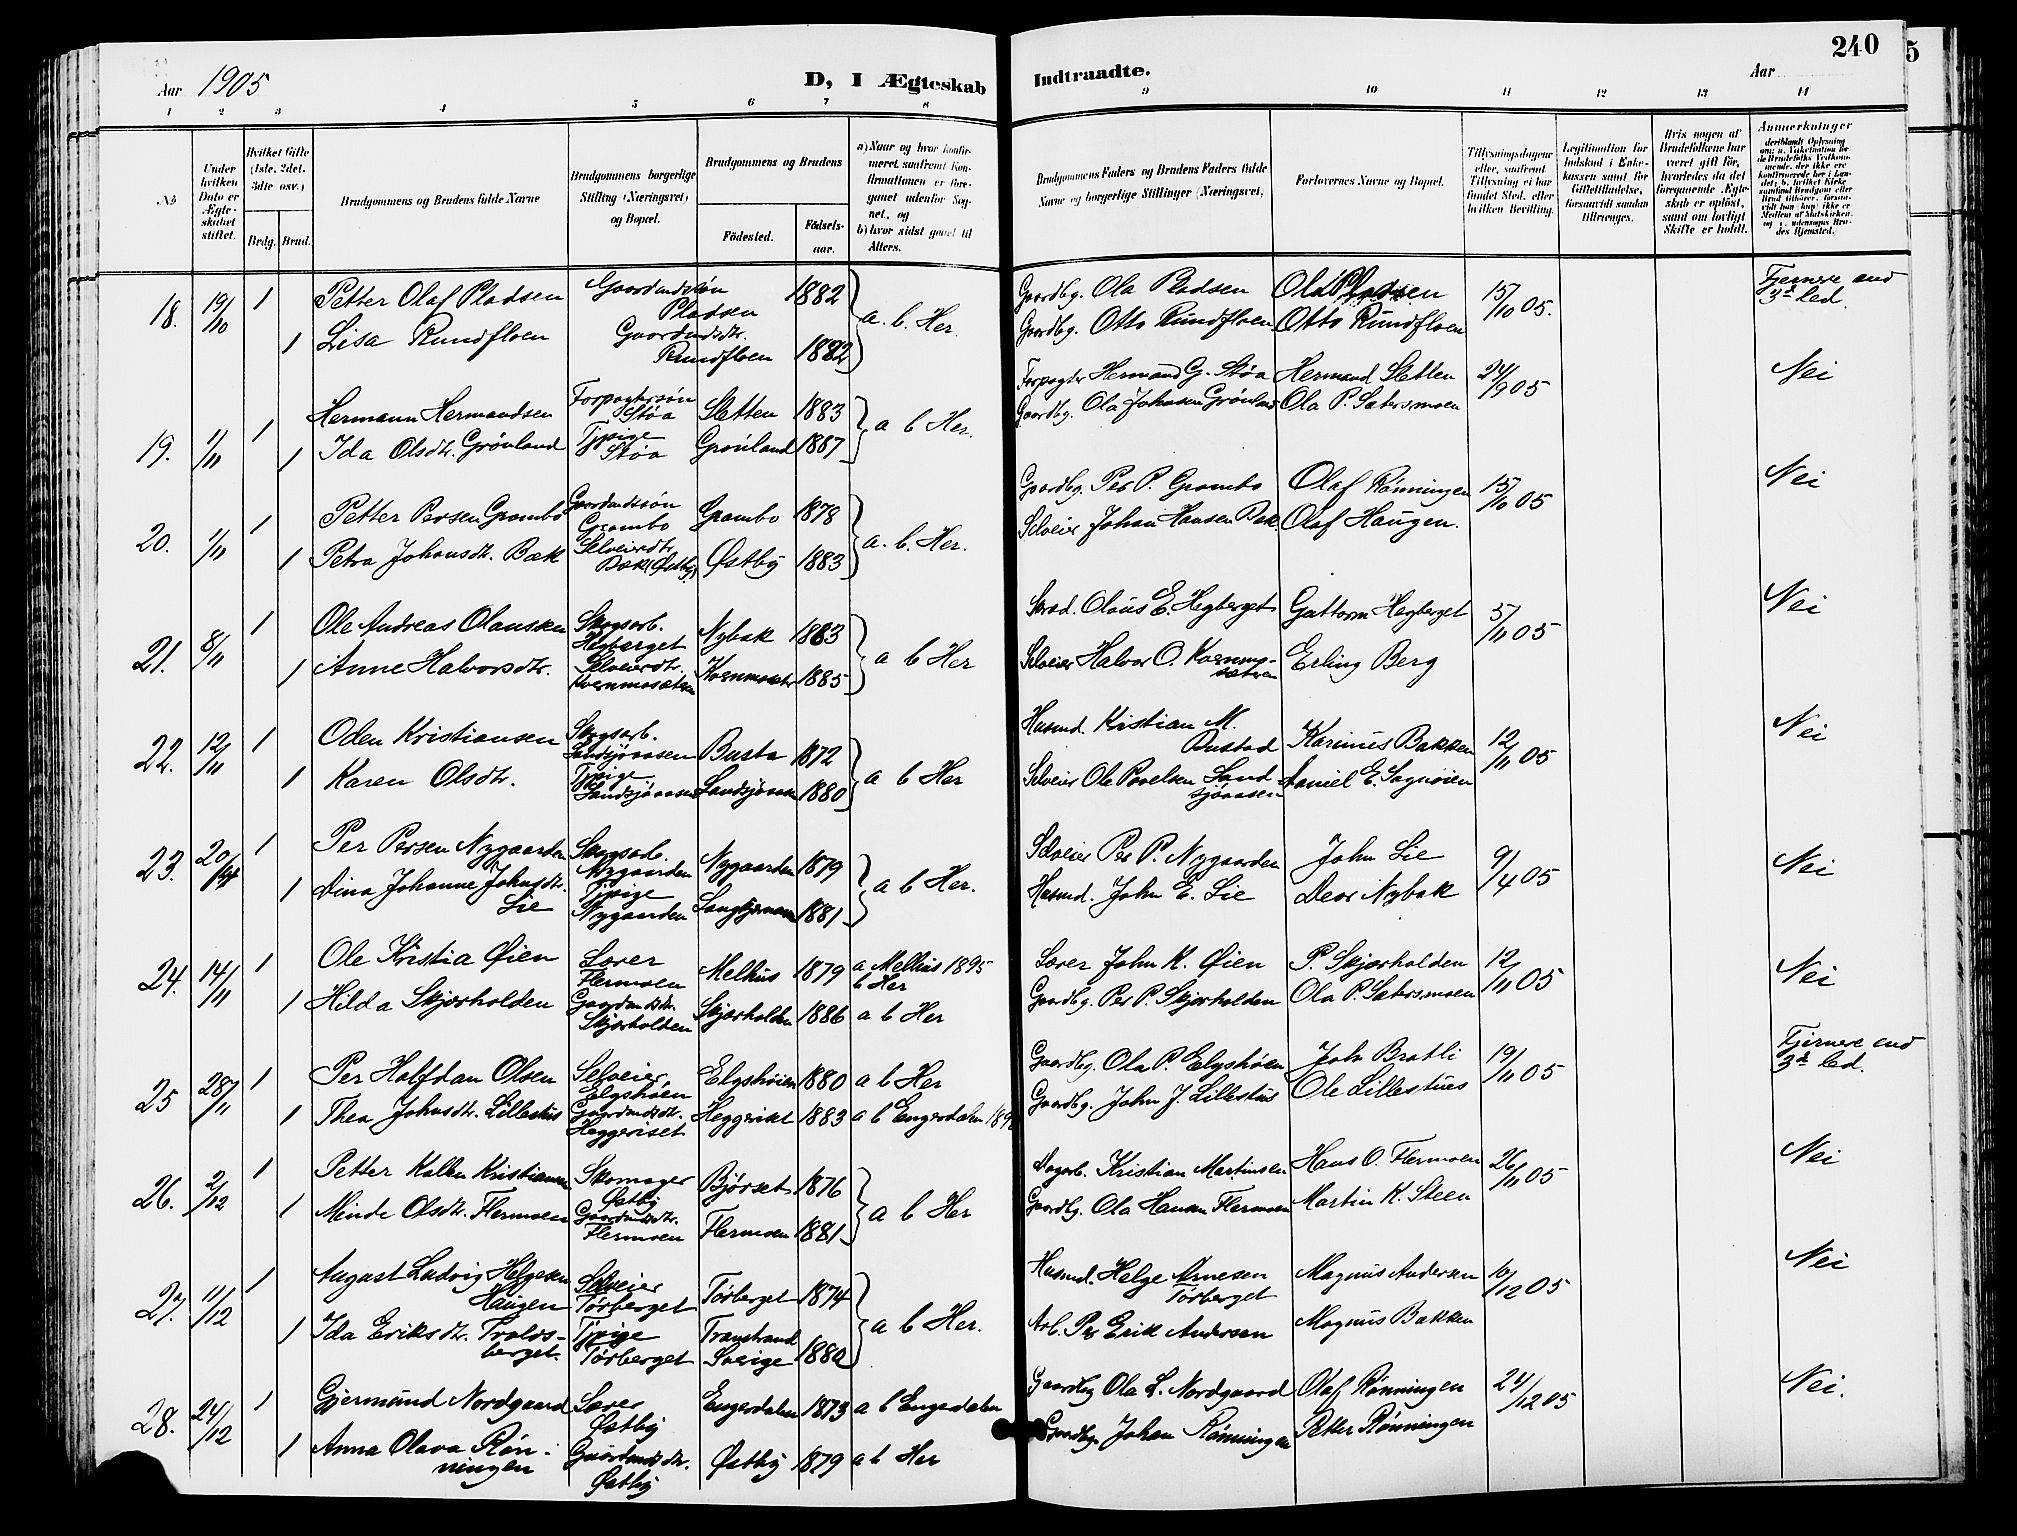 Aar 1905
D, I Ægteskab
Indtraadte.
Aar
240
5
1 2 3 4 5 6 7 8 9 10 11 12 13 14
No
Under hvilken Dato er Ægteskabet stiftet.
Hvilket Gifte (1ste, 2det, 3dte osv.)
Brdg. Brud.
Brudgommens og Brudens fulde Navne
Brudgommens borgerlige Stilling (Næringsvei) og Bopæl.
Brudgommens og Brudens
Fødested.
Fødselsaar.
a) Naar og hvor konfirmeret, saafremt Konfirmationen er foregaaet udenfor Sognet, og
b) hvor sidst gaaet til Alters.
Brudgommens Faders og Brudens Faders fulde Navne og borgerlige Stillinger (Næringsvei)
Forlovernes Navne og Bopæl.
Tillysningsdagene eller, saafremt Tillysning ei har fundet Sted, efter hvilken Bevilling.
Legitimation for Indskud i Enkekassen samt for Giftetilladelse, forsaavidt saadan tiltrænges.
Hvis nogen af Brudefolkene har været gift før, hvorledes da det foregaaende Ægteskab er opløst, samt om lovligt Skifte er holdt.
Anmærkninger
18. 19/10 1 Petter Olaf Pladsen Gaardmdsøn Pladsen 1882 a. b. Her. Gaardbg. Ola Pladsen Ola Pladsen 15/10 05. Fjernere end 3d led.
1 Lisa Rundfloen Gaardmdsdtr. Rundfloen 1882 Gaardbg. Otto Rundfloen Otto Rundfloen
19. 1/11 1 Hermann Hermandsen Forpagtersøn Støa Sletten 1883 a b Her. Forpagter Hermand G. Støa Hermand Sletten 24/9 05 Nei
1 Ida Olsdtr. Grönland Tjpige Støa Grönland 1887 Gaardbg. Ola Johnsen Grönland Ola P. Sætersmoen
20. 1/11 1 Petter Persen Grambo Gaardmdssøn Grambo Grambo 1878 a. b. Her. Gaardbg. Per P. Grambo Olaf Rønningen 15/10 05 Nei
1 Petra Johansdtr. Bæk Selveierdtr. Bæk (Østby) Østby 1883 Selveier Johan Hansen Bæk Olaf Haugen.
21. 8/11 1 Ole Andreas Olaussen Skogsarb. Hegberget Nybak 1883 a b Her Olaus E. Hegberget Guttorm Hegberget 5/11 05 Nei
1 Anne Halvorsdtr. Selveierdtr. 1885 Selveier Halvor O. Erling Berg
22. 12/11 1 Oden Kristiansen Skogsarb. Landsjøaasen 1872 a b Her Husmd. Kristian M. Karinus Bakken 12/11 05 Nei
1 Karen Olsdtr. Tjpige. Landsjøaasen Landsjøaasen 1880 Selveier Ole Povelsen Landsjøaasen Daniel E.
23. 20/ 1 Per Persen Nygaarden Skogsarb. Nygaarden Nygaarden 1879 a b Her. Selveier Per P. Nygaarden John Lie 9/4 05 Nei
1 Dina Johanne Johnsdtr. Lie Tjpige Nygaarden 1881 Husmd. John E. Lie Nybak
24. 14/11 1 Ole Kristia Øien Lærer Flermoen Melhus 1879 a Melhus 1895 b Her Lærer John K. Øien P. Skjærholden 12/11 05 Nei
1 Hilda Skjærholden Gaardmdsdtr. Skjærholden Skjærholden 1886 a b Her Gaardbg. Per P. Skjærholden Ola P. Sætersmoen
25 28/11 1 Per Halfdan Olsen Selveier Elgshøen Elgshøien 1880 a b Her Gaardbg. Ola P. Elgshøen John Bratli 19/11 05 Fjernere end 3d led.
1 Thea Johnsdtr. Lillestus Gaardmdsdtr. Heggeriset Heggeriset 1883 a b Engerdalen Gaardbg. John J. Lillestus Ole Lillestues
26. 2/12 1 Petter Kristiansen Skomager Østby Bjørset 1876 a b Her Dagarb. Kristian Martinsen Hans O. Flermoen 26/11 05 Nei
1 Minde Olsdtr. Flermoen Gaardmdsdtr. Flermoen Flermoen 1881 Gaardbg. Ola Hansen Flermoen Martin K. Steen
27. 11/12 1 August Ludvig Helgesen Haugen Selveier Tørberget Tørberget 1874 a b Her. Husmd. Helge Arnesen Tørberget Magnus Andersen 10/12 05 Nei
1 Ida Eriksdtr. Troldsberget. Tjpige Tørberget Transtrand Sverige 1880 Arb. Per Erik Andersen Magnus Bakken
28. 24/12 1 Gjermund Nordgaard Lærer Østby Engerdalen 1873 a b Engerdalen Gaardbg Ola L. Nordgaard Olaf Rønningen 24/12 05 Nei.
1 Anna Olava Rønningen Gaardmdsdtr. Østby Østby 1879 a b Her Gaardbg. Johan Rønningen Petter Rønningen